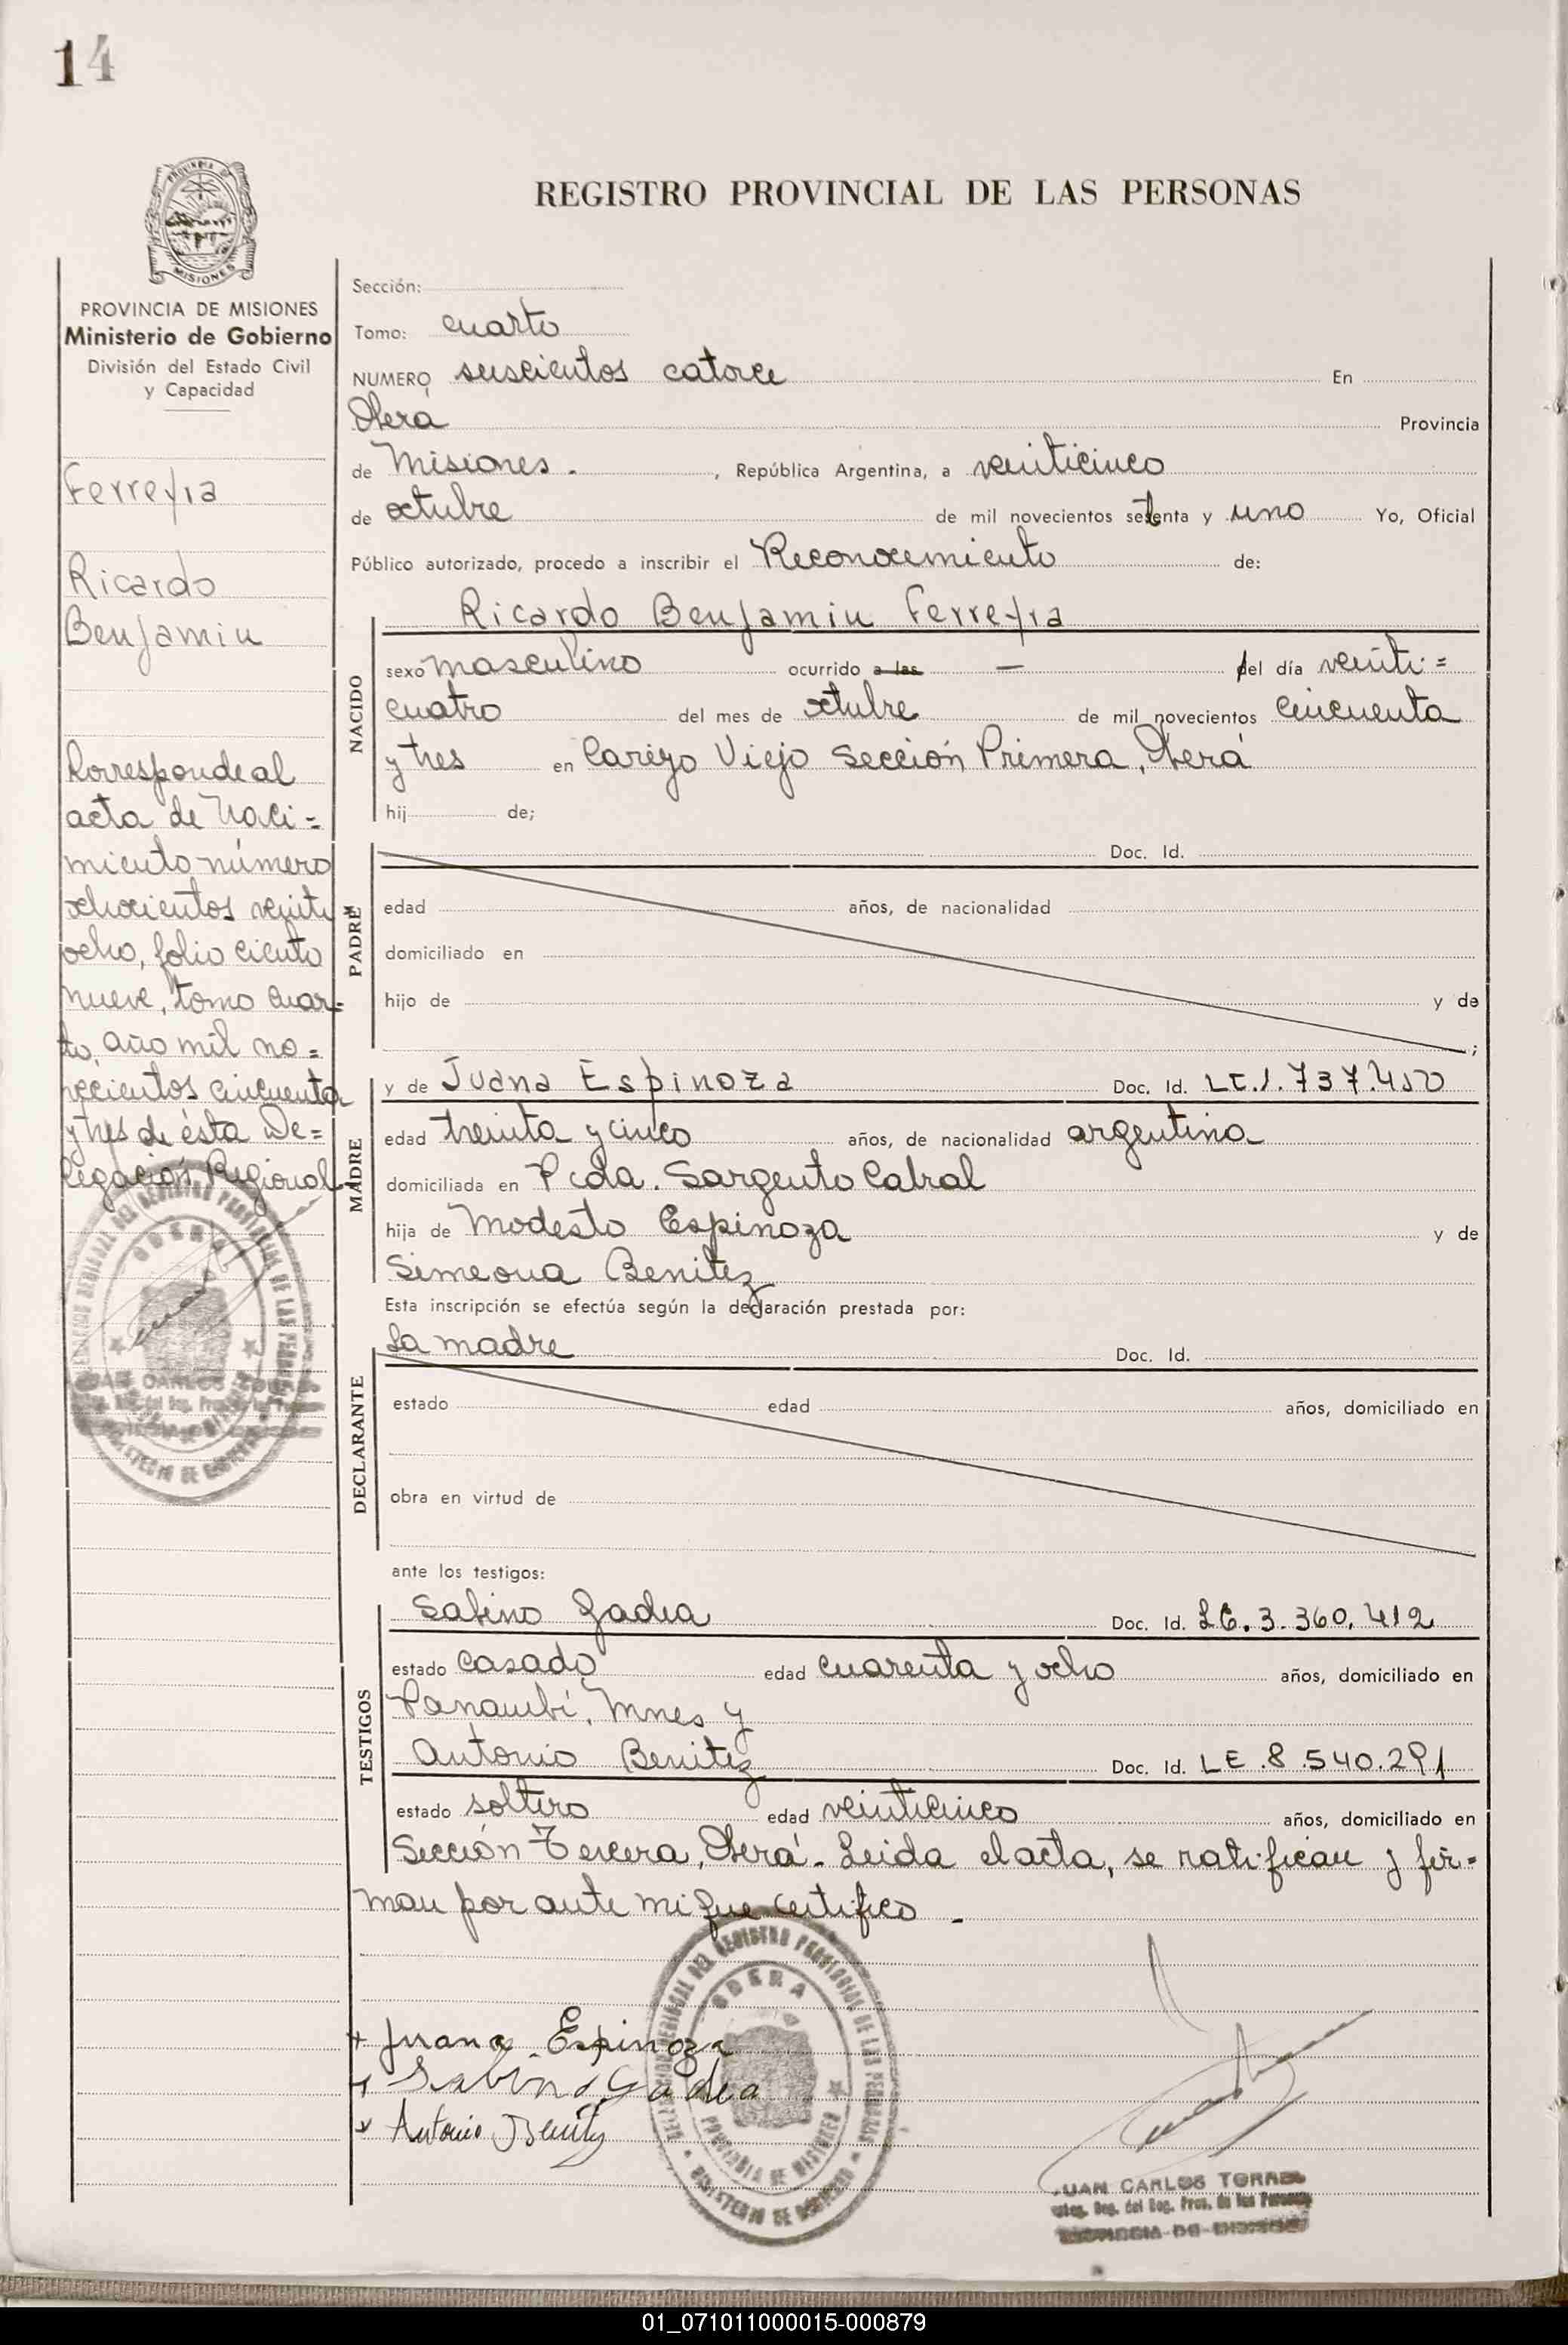 14
REGISTRO PROVINCIAL DE LAS PERSONAS
MISIONES
PROVINCIA DE MISIONES
Ministerio de Gobierno
División del Estado Civil
y Capacidad
Ferreyra
Ricardo
Benjamin
Corresponde al
acta de Naci=
miento número
ochocientos veinti
ocho, folio ciento
nueve, tomo cuar=
to, año mil no=
vecientos cincuenta
y tres de ésta De=
legación Regional
Sección:
Tomo: cuarto
NUMERO seiscientos catorce En
Oberá Provincia
de Misiones. , República Argentina, a veinticinco
de octubre de mil novecientos setenta y uno Yo, Oficial
Público autorizado, procedo a inscribir el Reconocimiento de:
Ricardo Benjamin Ferreyra
NACIDO
sexo masculino ocurrido a las — del día veinti=
cuatro del mes de octubre de mil novecientos cincuenta
y tres en Viejo Sección Primera, Oberá
hij de;
PADRE
Doc. Id.
edad años, de nacionalidad
domiciliado en
hijo de y de
;
MADRE
y de Juana Espinoza Doc. Id. 737.
edad treinta y cinco años, de nacionalidad argentina
domiciliada en Pcda. Sargento Cabral
hija de Modesto Espinoza y de
Simeona Benitez
Esta inscripción se efectúa según la declaración prestada por:
DECLARANTE
La madre Doc. Id.
estado edad años, domiciliado en
obra en virtud de
ante los testigos:
TESTIGOS
Sabino Gadea Doc. Id. LE. 3.360.412
estado casado edad cuarenta y ocho años, domiciliado en
Panambí, Mnes y
Antonio Benitez Doc. Id. LE.8.540.291
estado soltero edad veinticinco años, domiciliado en
Sección Tercera, Oberá. Leida el acta, se ratifican y fir=
man por ante mi que certifico.
Juana Espinoza
Sabino Gadea
Antonio Benitez
OBERA
PROVINCIA DE MISIONES
JUAN CARLOS TORRES
01_071011000015-000879